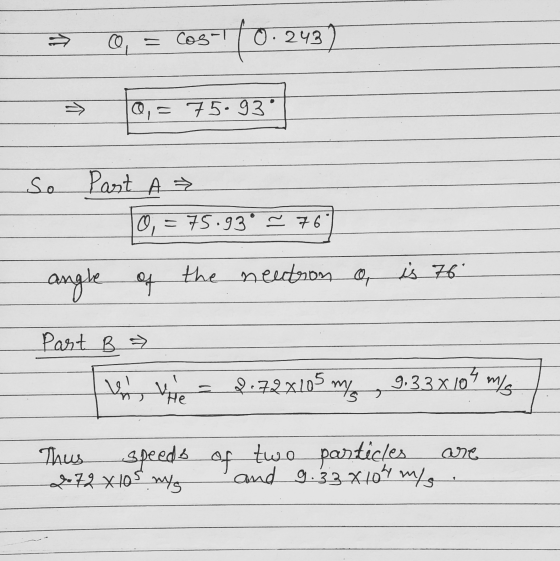 ⇒ θ₁ = cos⁻¹(0.243)
⇒ θ₁ = 75.93°
So Part A ⇒
θ₁ = 75.93° ≃ 76°
angle of the neutron θ₁ is 76°
Part B ⇒
V'n, V'He = 2.72×10⁵ m/s, 9.33×10⁴ m/s
Thus speeds of two particles are
2.72×10⁵ m/s and 9.33×10⁴ m/s.